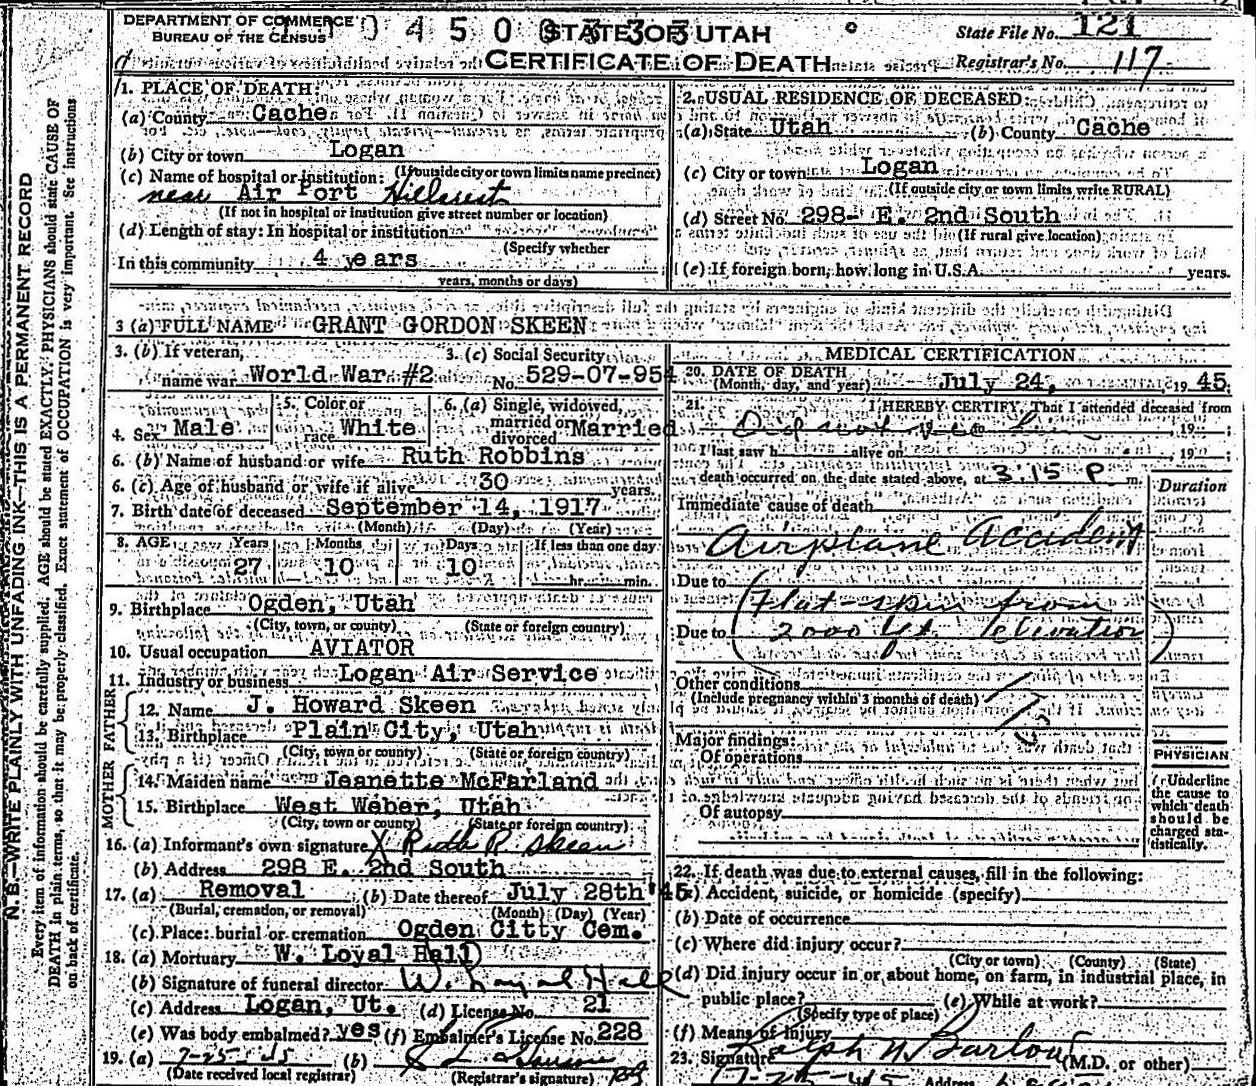 DEPARTMENT OF COMMERCE
BUREAU OF THE CENSUS
STATE OF UTAH
CERTIFICATE OF DEATH
State File No. 121
Registrar's No. 117
1. PLACE OF DEATH:
(a) County Cache
(b) City or town Logan
(c) Name of hospital or institution: (If outside city or town limits name precinct)
near Air Port Hillcrest
(If not in hospital or institution give street number or location)
(d) Length of stay: In hospital or institution
(Specify whether
In this community 4 years
years, months or days)
2. USUAL RESIDENCE OF DECEASED:
(a) State Utah (b) County Cache
(c) City or town Logan
(If outside city or town limits write RURAL)
(d) Street No. 298- E. 2nd South
(If rural give location)
(e) If foreign born, how long in U.S.A. years.
3 (a) FULL NAME GRANT GORDON SKEEN
3. (b) If veteran, name war World War #2
3. (c) Social Security No. 529-07-954
4. Sex Male
5. Color or race White
6. (a) Single, widowed, married or divorced Married
6. (b) Name of husband or wife Ruth Robbins
6. (c) Age of husband or wife if alive 30 years.
7. Birth date of deceased September 14, 1917
(Month) (Day) (Year)
8. AGE Years Months Days If less than one day
27 10 10 hr. min.
9. Birthplace Ogden, Utah
(City, town, or county) (State or foreign country)
10. Usual occupation AVIATOR
11. Industry or business Logan Air Service
FATHER
12. Name J. Howard Skeen
13. Birthplace Plain City, Utah
(City, town or county) (State or foreign country)
MOTHER
14. Maiden name Jeanette McFarland
15. Birthplace West Weber, Utah
(City, town or county) (State or foreign country)
16. (a) Informant's own signature X Ruth R. Skeen
(b) Address 298 E. 2nd South
17. (a) Removal (b) Date thereof July 28th '45
(Burial, cremation, or removal) (Month) (Day) (Year)
(c) Place: burial or cremation Ogden Citty Cem.
18. (a) Mortuary W. Loyal Hall
(b) Signature of funeral director W. Loyal Hall
(c) Address Logan, Ut. (d) License No. 21
(e) Was body embalmed? yes (f) Embalmer's License No. 228
19. (a) 7-25-45 (b)
(Date received local registrar) (Registrar's signature)
MEDICAL CERTIFICATION
20. DATE OF DEATH
(Month, day, and year) July 24, 1945
21. I HEREBY CERTIFY, That I attended deceased from
Did not see him, 19
I last saw h alive on 19
death occurred on the date stated above, at 3:15 P. m.
Duration
Immediate cause of death
Airplane Accident
Due to (Flat-spin from
Due to 2000 ft. elevation)
Other conditions
(Include pregnancy within 3 months of death)
Major findings:
Of operations
Of autopsy
PHYSICIAN
Underline
the cause to
which death
should be
charged sta-
tistically.
22. If death was due to external causes, fill in the following:
(a) Accident, suicide, or homicide (specify)
(b) Date of occurrence
(c) Where did injury occur?
(City or town) (County) (State)
(d) Did injury occur in or about home, on farm, in industrial place, in
public place? (e) While at work?
(Specify type of place)
(f) Means of Injury
23. Signature Ralph N. Barlow (M.D. or other)
7-25-45 Address
N. B.—WRITE PLAINLY WITH UNFADING INK—THIS IS A PERMANENT RECORD
Every item of information should be carefully supplied. AGE should be stated EXACTLY. PHYSICIANS should state CAUSE OF
DEATH in plain terms, so that it may be properly classified. Exact statement of OCCUPATION is very important. See instructions
on back of certificate.